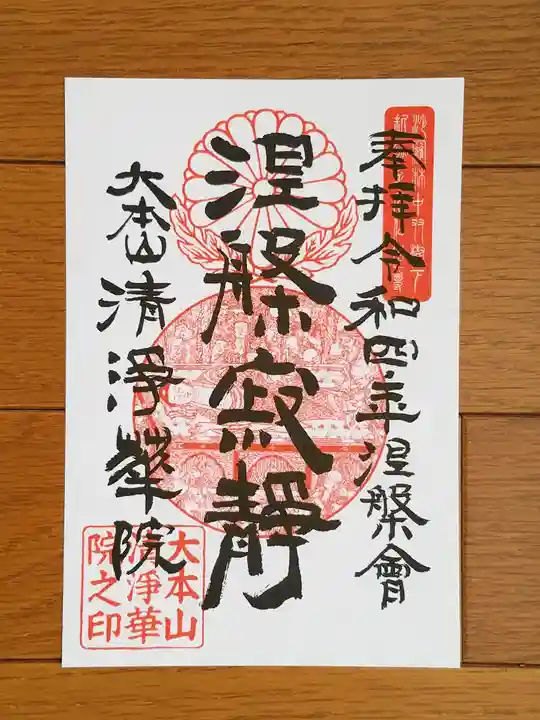 奉拝令和四年涅槃會
涅槃寂靜
大本山清浄華院
大本山
清浄華
院之印